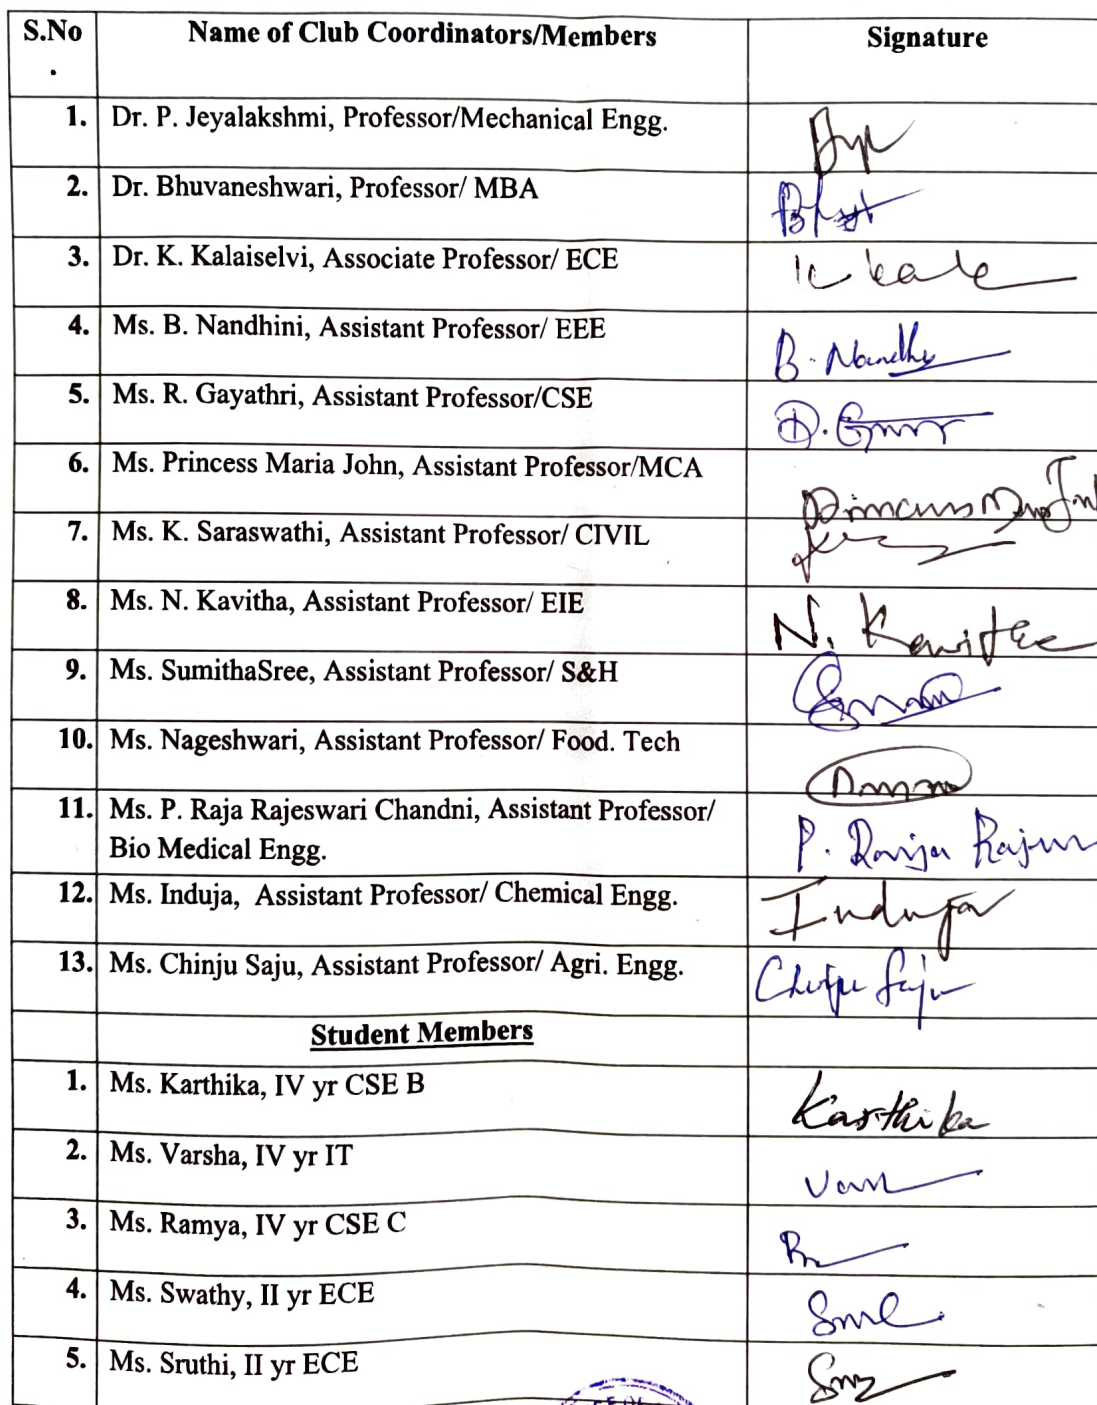 S.No Name of Club Coordinators/Members Signature
.
1. Dr. P. Jeyalakshmi, Professor/Mechanical Engg.
2. Dr. Bhuvaneshwari, Professor/ MBA
3. Dr. K. Kalaiselvi, Associate Professor/ ECE
4. Ms. B. Nandhini, Assistant Professor/ EEE B. Nandhy
5. Ms. R. Gayathri, Assistant Professor/CSE
6. Ms. Princess Maria John, Assistant Professor/MCA
7. Ms. K. Saraswathi, Assistant Professor/ CIVIL
8. Ms. N. Kavitha, Assistant Professor/ EIE N.
9. Ms. SumithaSree, Assistant Professor/ S&H
10. Ms. Nageshwari, Assistant Professor/ Food. Tech
11. Ms. P. Raja Rajeswari Chandni, Assistant Professor/ P. Raja
Bio Medical Engg.
12. Ms. Induja, Assistant Professor/ Chemical Engg. Induja
13. Ms. Chinju Saju, Assistant Professor/ Agri. Engg. Chinju Saju
Student Members
1. Ms. Karthika, IV yr CSE B Karthika
2. Ms. Varsha, IV yr IT
3. Ms. Ramya, IV yr CSE C
4. Ms. Swathy, II yr ECE
5. Ms. Sruthi, II yr ECE